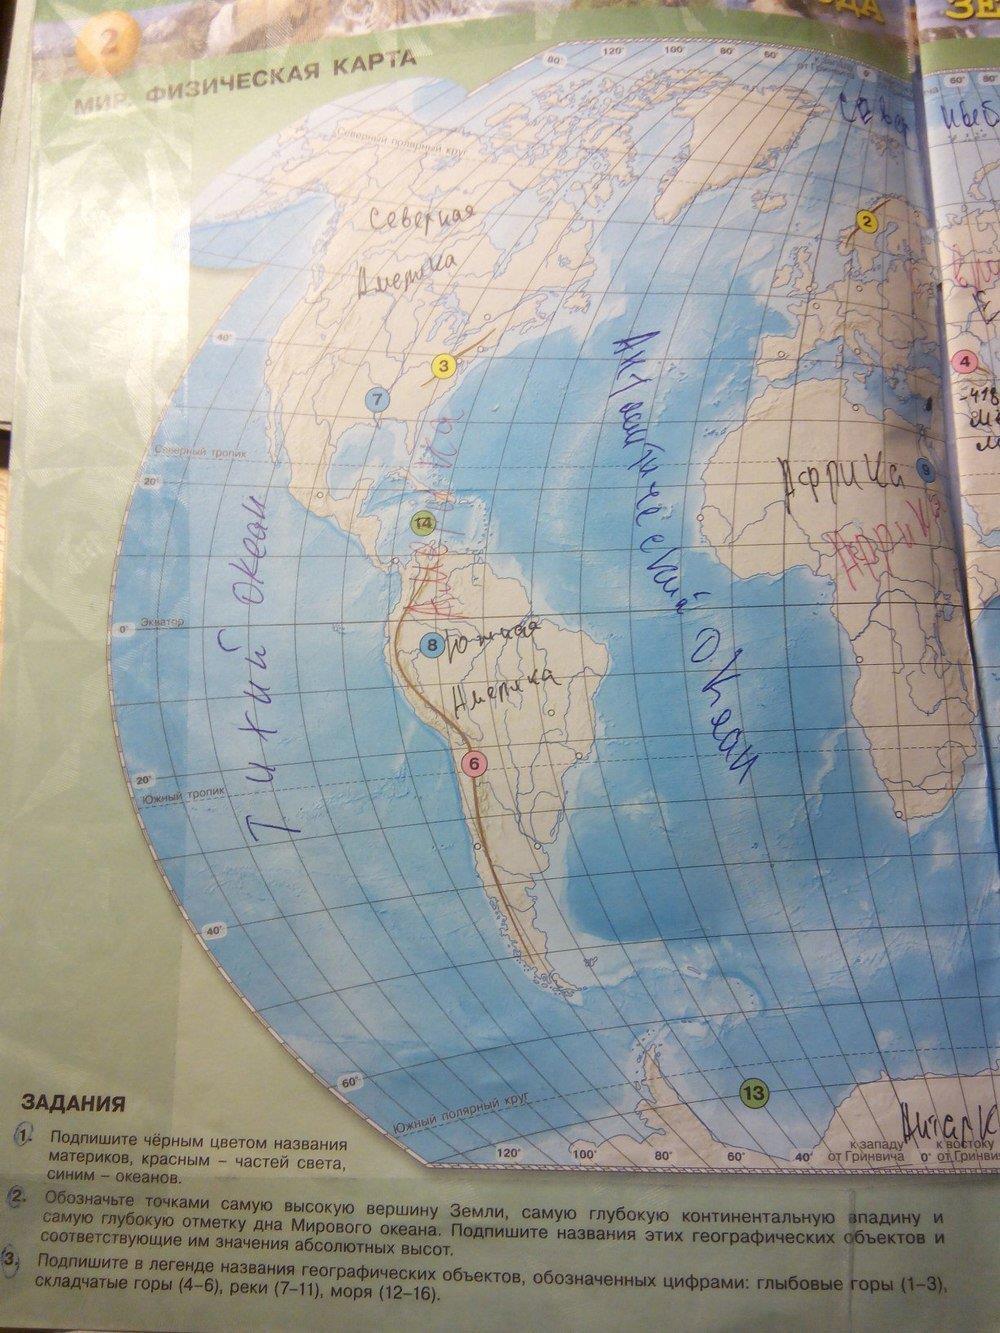 2
ОДА
ЗЕ
МИР. ФИЗИЧЕСКАЯ КАРТА
80°
120°
100°
80°
60°
к западу
от Гринвича
0°
60°
80°
Северный полярный круг
2
Северная
Америка
40°
3
7
4
Северный тропик
20°
9
Африка
14
Америка
Тихий океан
Атлантический океан
Экватор
0°
8
Южная
Америка
20°
Южный тропик
6
40°
60°
Южный полярный круг
13
Антарк
120°
100°
80°
60°
40°
к западу
от Гринвича
0°
к востоку
от Гринвич
ЗАДАНИЯ
1. Подпишите чёрным цветом названия
материков, красным – частей света,
синим – океанов.
2. Обозначьте точками самую высокую вершину Земли, самую глубокую континентальную впадину и
самую глубокую отметку дна Мирового океана. Подпишите названия этих географических объектов и
соответствующие им значения абсолютных высот.
3. Подпишите в легенде названия географических объектов, обозначенных цифрами: глыбовые горы (1–3),
складчатые горы (4–6), реки (7–11), моря (12–16).